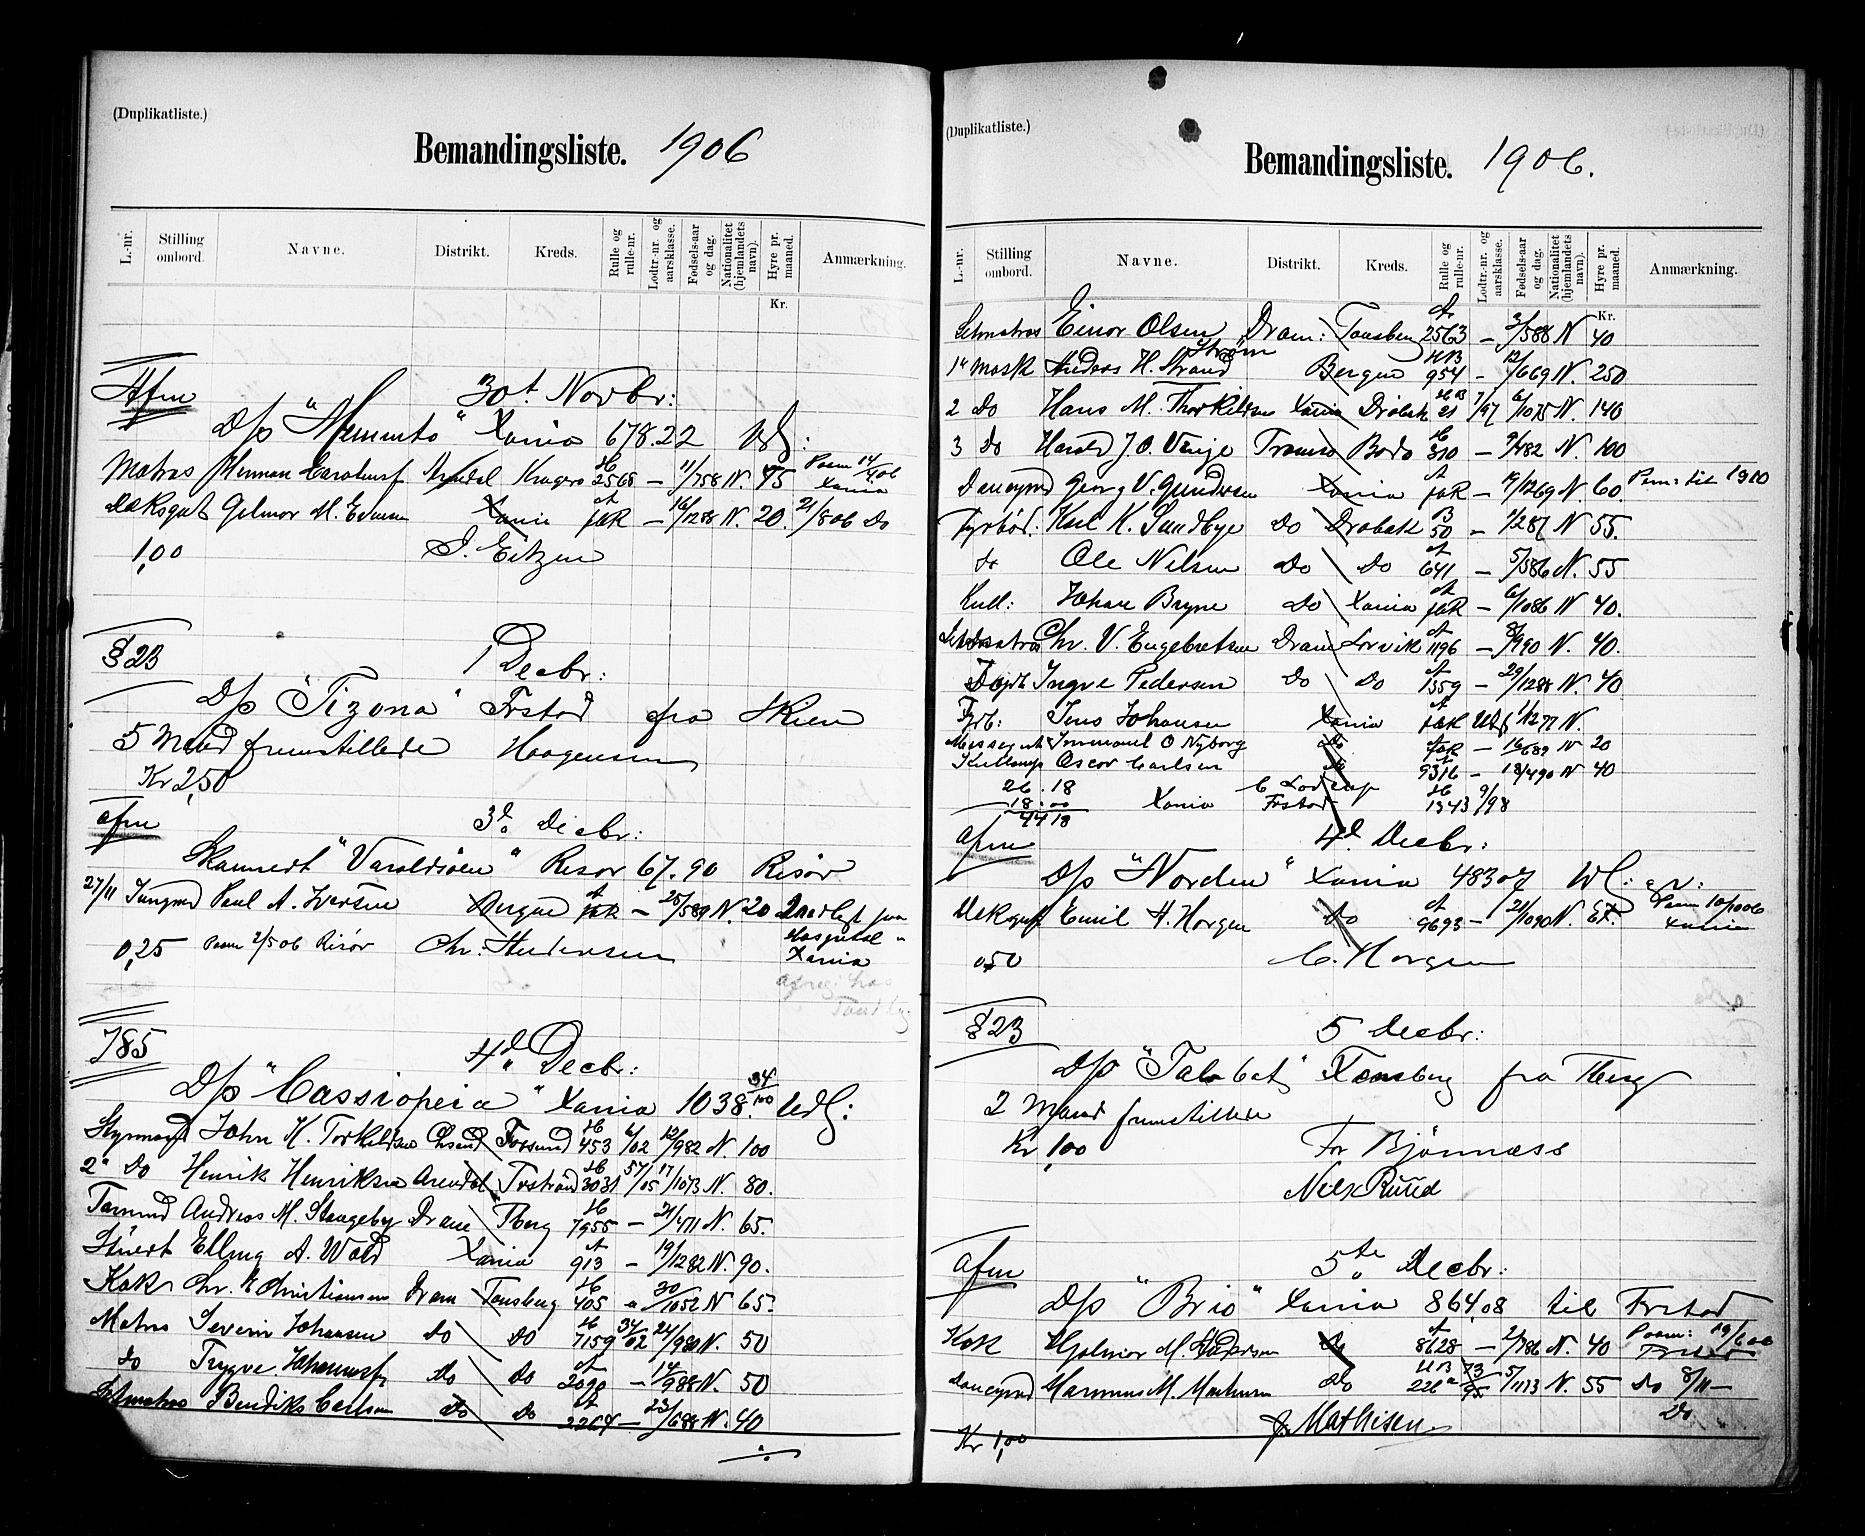 (Duplikatliste.)
Bemandingsliste. 1906
L.-nr. Stilling ombord. Navne. Distrikt. Kreds. Rulle og rulle-nr. Lodtr.-nr. og aarsklasse. Fødsels-aar og dag. Nationalitet (hjemlandets navn). Hyre pr. maaned. Anmærkning.
Kr.
Afm 30t Novbr:
D/s "Memento" Xania 678.22 Udl:
Matros Herman Arendal Kragerø 2568 — 11/7 58 N. 75 Paam 14/4 06 Xania
Dæksgut Gelmor M. Evensen Xania — 16/12 88 N. 20. 21/8 06 Do
1,00 Eitzen
§ 23 1 Decbr:
D/s "Tizona" Frstad fra Skien
5 Mand fremstillede Haagensen
Kr 2,50
afm 3d. Decbr:
Skonnert "Varoldsøen" Risør 67.90 Risør
27/11 Jungmd Paul A. Iversen Bergen — 25/5 89 N. 20 fra Hospital
0,25 Paam 2/5 06 Risør Chr. Andersen Xania
785 4d Decbr:
D/s "Cassiopeia" Xania 1038.34/100 Udl:
Styrmand John H. Torkildsen Chsand Farsund 453 6/02 12/9 82 N 100
2" Do Henrik Henriksen Arendal 3031 57/05 17/10 73 N. 80.
Tømmd Andreas M. Stangeby Dram Tberg 7955 — 21/4 71 N. 65.
Stuert Elling A. Wold Xania 913 — 19/12 82 N. 90.
Kok Chr. E Christiansen Dram Tønsberg 405 30/10 52 N 65.
Matros Severin Johansen do do 7159 34/02 24/9 80 N. 50
do Trygve Johannesf do do 2090 — 14/9 88 N. 50
Letmatros Bendiks Carlsen do do 2264 — 23/6 88 N. 40
(Duplikatliste.)
Bemandingsliste. 1906.
L.-nr. Stilling ombord. Navne. Distrikt. Kreds. Rulle og rulle-nr. Lodtr.-nr. og aarsklasse. Fødsels-aar og dag. Nationalitet (hjemlandets navn). Hyre pr. maaned. Anmærkning.
Kr.
Letmatros Einar Olsen Dram: Tønsberg 2563 — 3/5 88 N 40
Strøm
1" Mask Anders H. Strand Bergen HB 954 — 12/6 69 N. 250
2 Do Hans M. Thorkildsen Xania Drøbak 21 7/97 6/10 75 N. 140
3 Do Harald J. O. Tromsø Bodø 310 — 9/4 82 N. 100
Donkymd Georg V. Gundersen Xania — 17/12 69 N 60. Pm: til 1910
Fyrbød: Karl K. Sundbye Do Drøbak B 50 — 1/2 87 N 55.
do Ole Nilsen Do Do 641 — 5/5 86 N. 55
Kull: Johan Bryne Do Xania — 6/10 86 N 40.
Letmatros Chr. V. Engebretsen Dram Larvik 1196 — 8/9 90 N. 40.
Ingve Pedersen Do Do 1359 — 29/12 88 N. 40
Fyrb: Jens Johansen Xania 1/12 77 N.
Messegut Immanuel O Nyborg do — 16/6 89 N 20
Kullemp Oscar Carlsen do 9316 — 18/4 90 N 40
26.18
18.00 Xania Frstad 1343 9/98
44.18
afm 4d Decbr:
D/s "Norden" Xania 483.07
Dæksgut Emil H. Horgen do 9693 — 21/10 90 N. Paam 10/10 06 Xania
0,50 C. Horgen
§ 23 5 Decbr:
D/s Tønsberg fra Tberg
2 Mand fremstillede
Kr 1,00 For Bjønness
Nils Ruud
afm 5te Decbr:
D/s "Brio" Xania 864,08 til Frstad
Kok Hjalmar M. Andersen do 8628 — 2/7 86 N. 40 Paam: 19/6 06 Frstad
Donkymd Marinius M. Do 226 73/95 5/11 73 N. 55 Do 8/11 —
Do
Kr 1,00 J. Mathisen